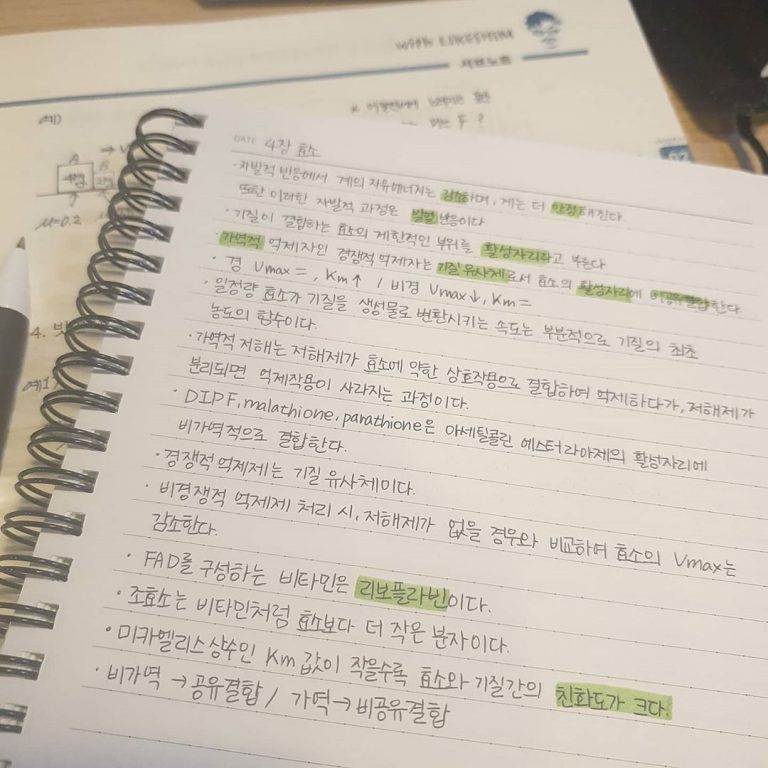 WITH LIKESUHM
예)
A
B
4kg
→ V
μ=0.2
4.
예1
DATE 4장 효소
· 자발적 반응에서 계의 자유에너지는 감소하며, 계는 더 안정해진다.
또한 이러한 자발적 과정은 발열 반응이다
· 기질이 결합하는 효소의 제한적인 부위를 활성자리라고 부른다
· 가역적 억제자인 경쟁적 억제자는 기질 유사체로서 효소의 활성자리에 비공유결합한다
· 경 Vmax =, Km↑ / 비경 Vmax↓, Km=
· 일정량 효소가 기질을 생성물로 변환시키는 속도는 부분적으로 기질의 최초
농도의 함수이다.
· 가역적 저해는 저해제가 효소에 약한 상호작용으로 결합하여 억제하다가, 저해제가
분리되면 억제작용이 사라지는 과정이다.
· DIPF, malathione, parathione은 아세틸콜린 에스터라아제의 활성자리에
비가역적으로 결합한다.
· 경쟁적 억제제는 기질 유사체이다.
· 비경쟁적 억제제 처리 시, 저해제가 없을 경우와 비교하여 효소의 Vmax는
감소한다.
· FAD를 구성하는 비타민은 리보플라빈이다.
· 조효소는 비타민처럼 효소보다 더 작은 분자이다.
· 미카엘리스상수인 Km 값이 작을수록 효소와 기질간의 친화도가 크다.
· 비가역 → 공유결합 / 가역 → 비공유결합